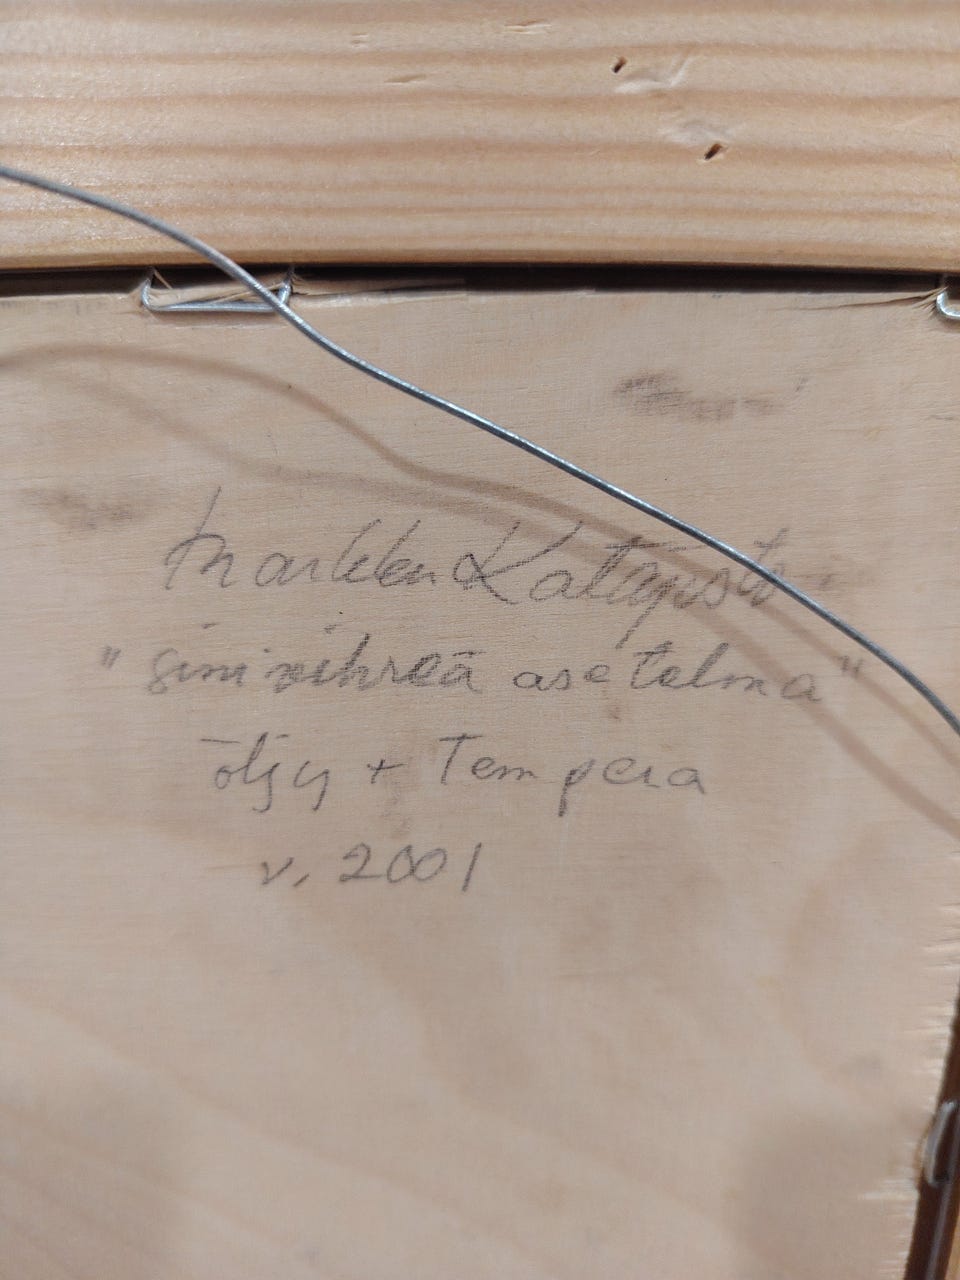 Markku Katajisto
"sinivihreä asetelma"
öljy + Tempera
v. 2001